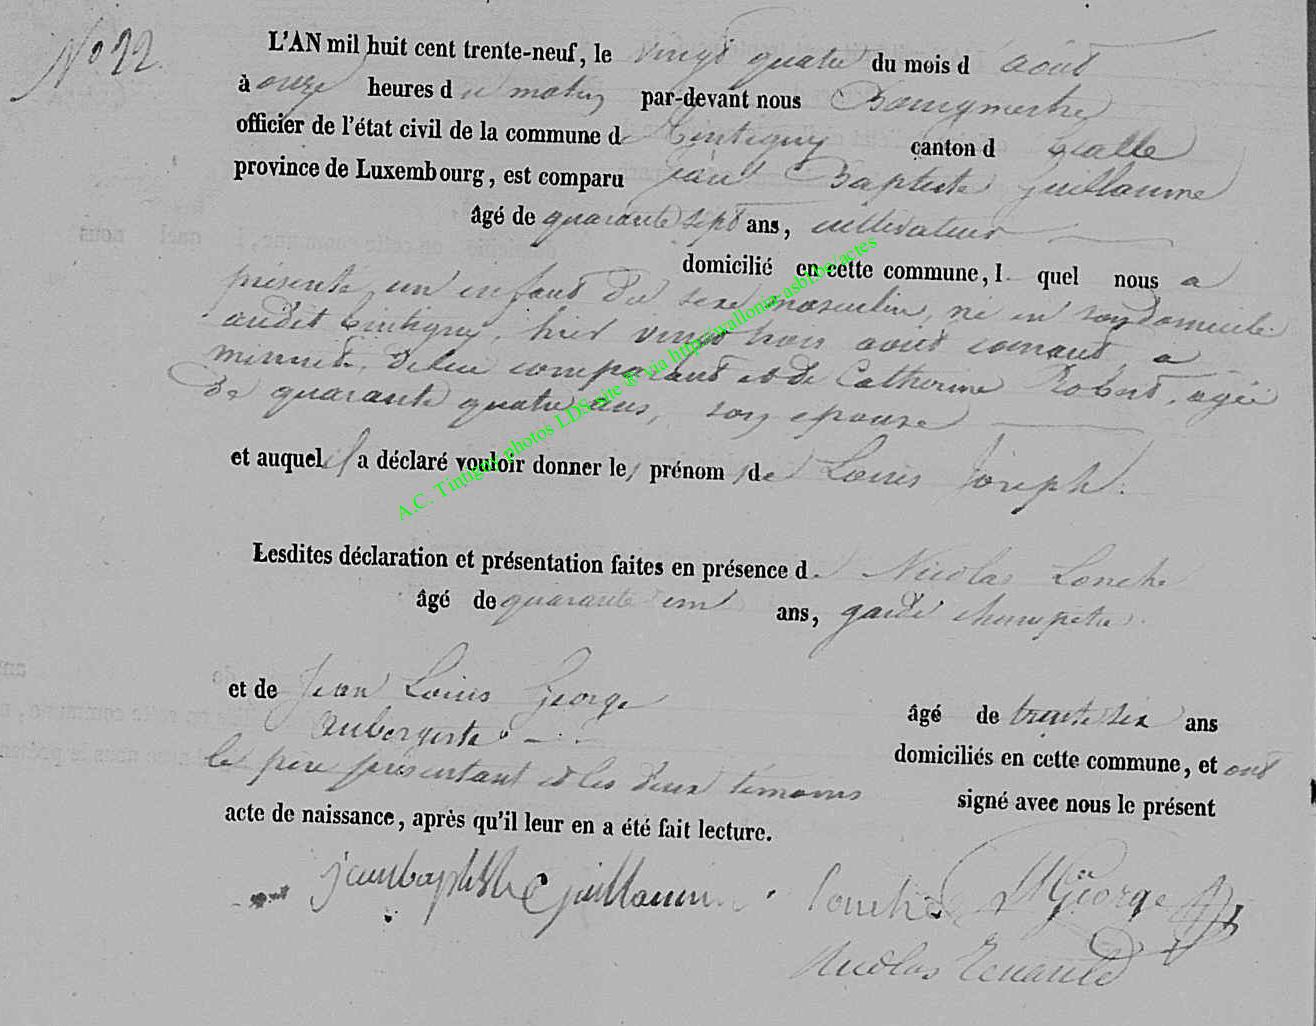 No 22.
L'AN mil huit cent trente-neuf, le vingt quatre du mois d août
à onze heures d u matin par-devant nous Bourgmestre
officier de l'état civil de la commune de Tintigny canton d Etalle
province de Luxembourg, est comparu Jean Baptiste Guillaume
âgé de quarante sept ans, cultivateur
domicilié en cette commune, l quel nous a
présenté un enfant du sexe masculin, né en son domicile
audit Tintigny, hier vingt trois août courant à
minuit, de lui comparant et de Catherine Robert, agée
de quarante quatre ans, son epouse
et auquel il a déclaré vouloir donner le prénom de Louis Joseph.
Lesdites déclaration et présentation faites en présence d Nicolas Lonche
âgé de quarante un ans, garde champetre
et de Jean Louis George âgé de trente six ans
aubergiste domiciliés en cette commune, et ont
le père présentant et les deux témoins signé avec nous le présent
acte de naissance, après qu'il leur en a été fait lecture.
jeanbaptiste Guillaume Lonche George
Nicolas Renauld
A.C. Tintigny photos LDS site ® via http://wallonia-asbl.be/actes